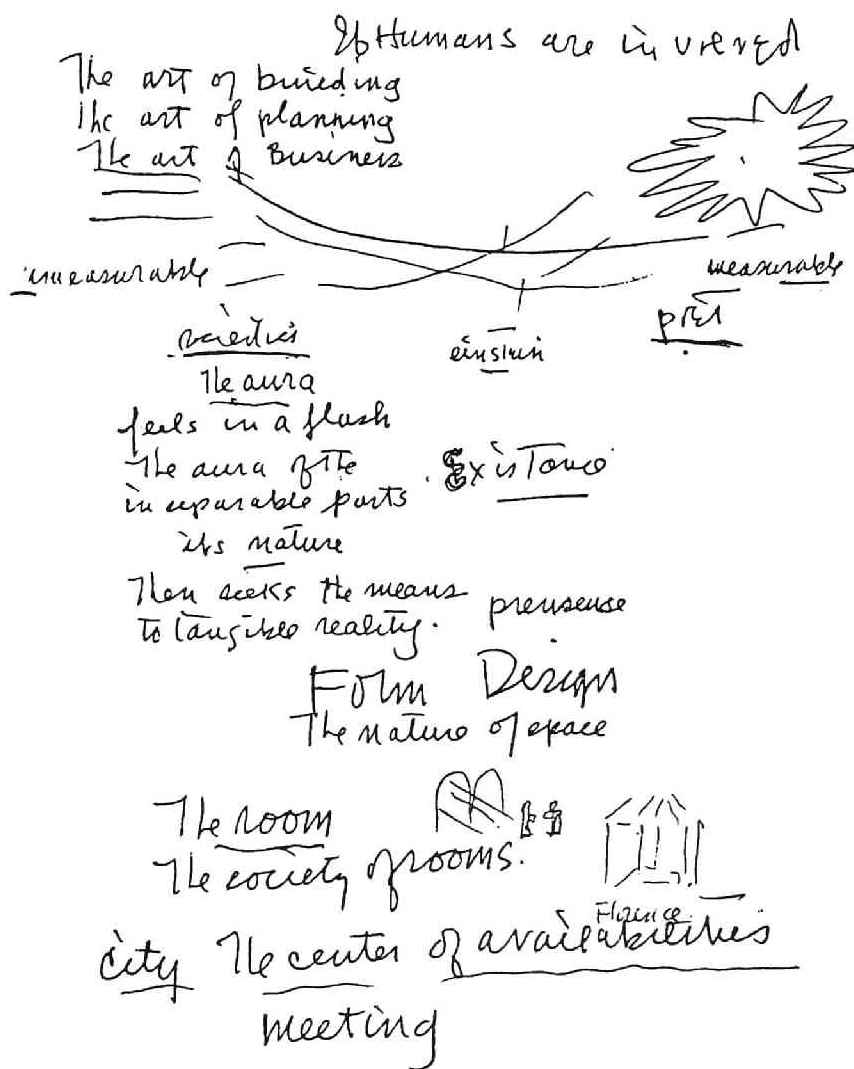 If Humans are involved
The art of building
The art of planning
The art of Business
unmeasurable
measurable
poet
einstein
The aura
feels in a flash
The aura of the
inseparable parts
Existence
its nature
Then seeks the means
to tangible reality.
presense
Form Design
The nature of space
The room
The society of rooms.
Florence
city The center of availabilities
meeting